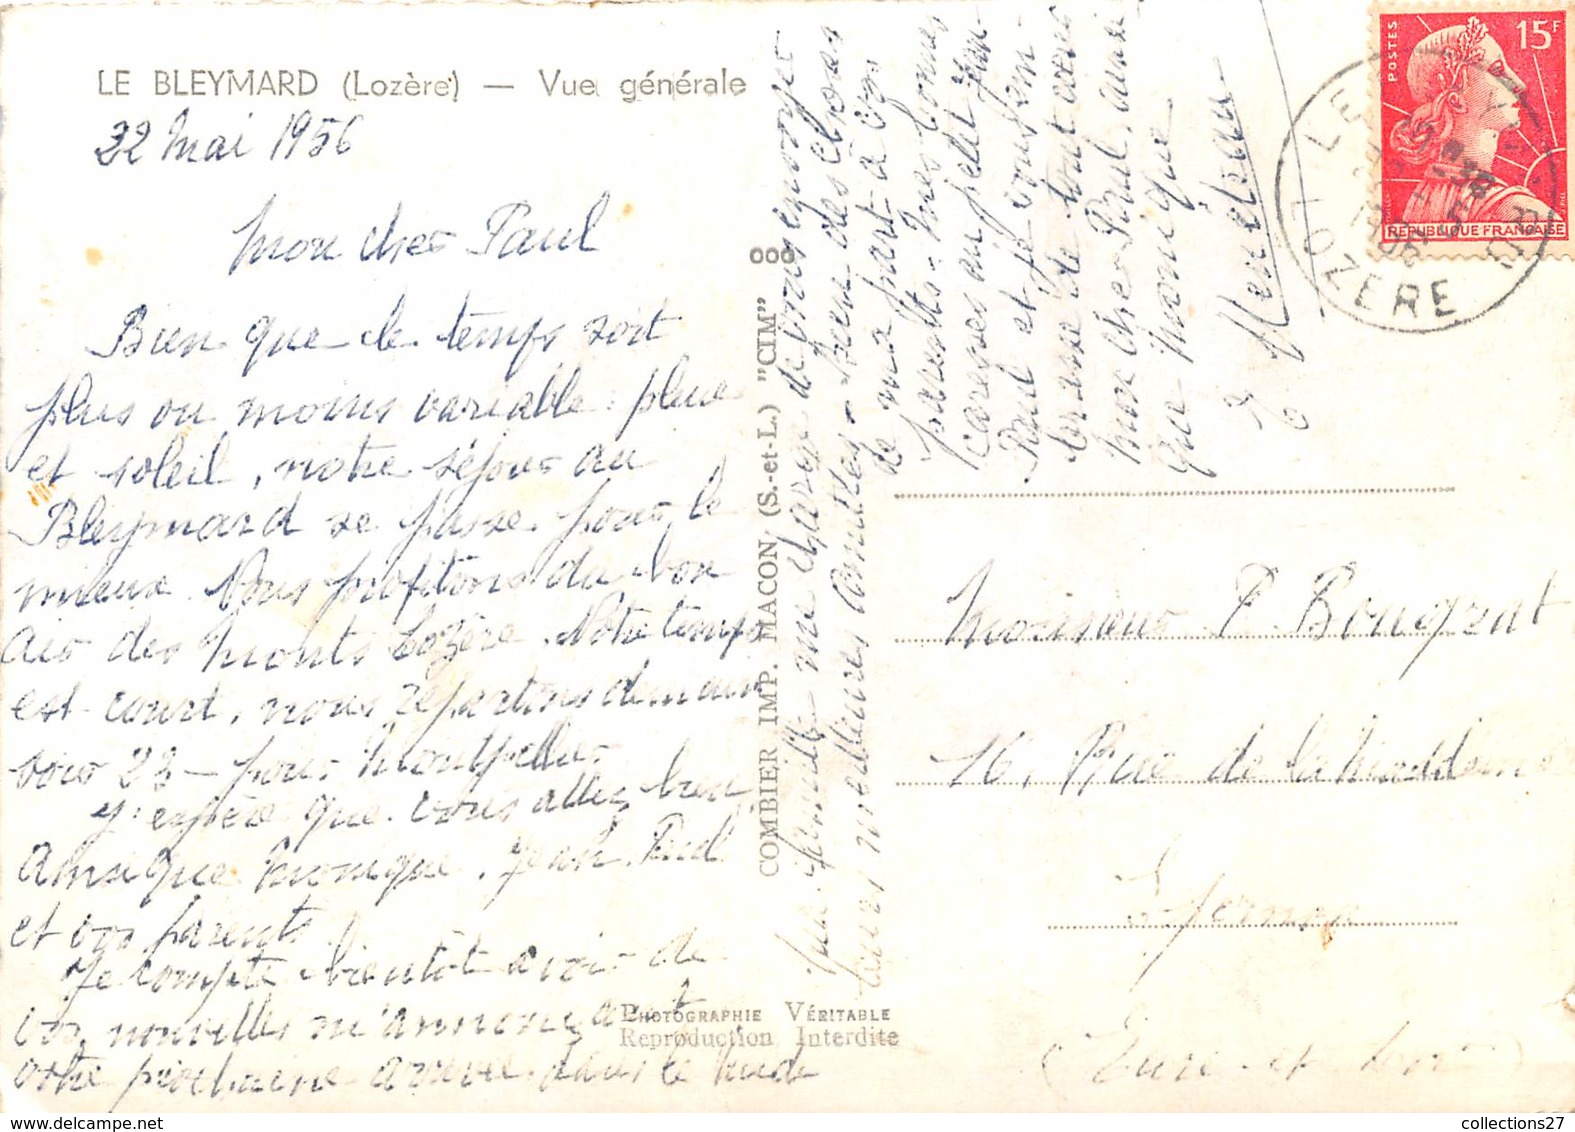 LE BLEYMARD (Lozère) — Vue générale
22 mai 1956
Mon cher Paul
Bien que le temps soit
plus ou moins variable : pluie
et soleil, notre séjour au
Bleymard se passe pour le
mieux. Nous profitons du bon
air des Monts Lozère. Notre temps
est court, nous repartons demain
soir 23 — pour Montpellier
J'espère que vous allez bien
ainsi que Monique, Jean Paul
et vos parents.
Je compte bientôt avoir de
vos nouvelles m'annonçant
votre prochaine arrivée dans le Midi
PHOTOGRAPHIE VÉRITABLE
Reproduction Interdite
COMBIER IMP. MACON (S.-et-L.) "CIM"
famille me charge de vous envoyer
leurs meilleures amitiés - bien des choses
de ma part à vos
parents - mes bonnes
caresses au petit Jean
Paul et je vous em-
brasse de tout coeur
mon cher Paul, ainsi
que Monique
15F
POSTES
REPUBLIQUE FRANÇAISE
LE BLEYMARD
LOZERE
Monsieur P. Bougrat
16, Rue de la Madeleine
(Eure-et-Loir)
collections27